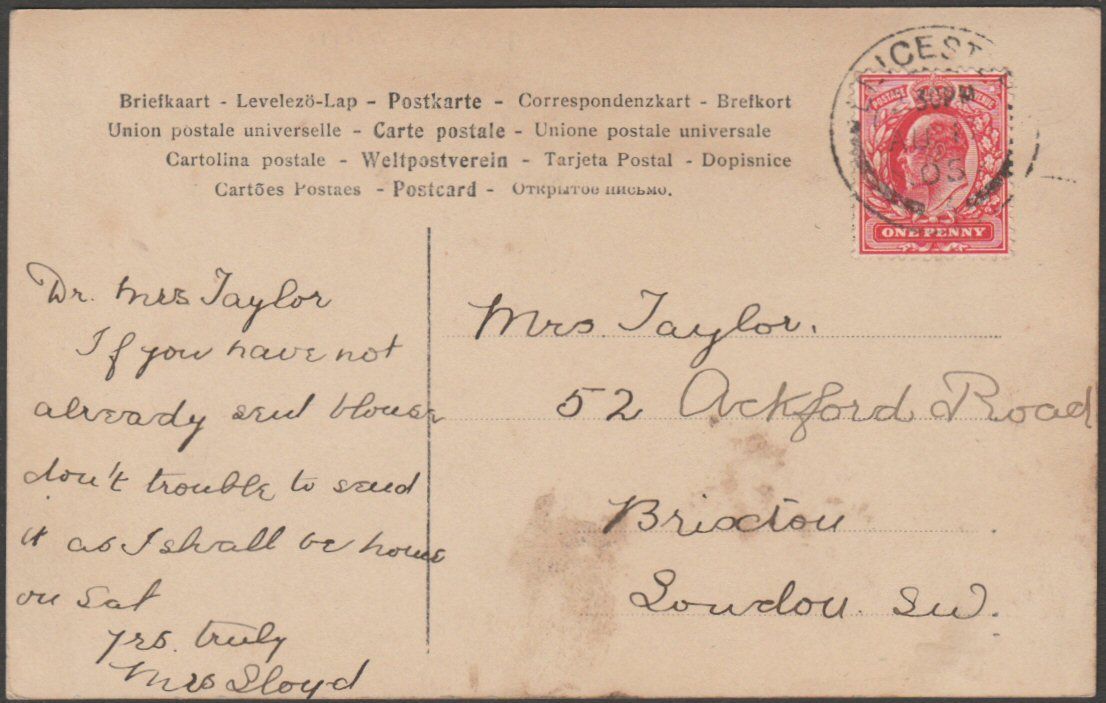 Briefkaart - Levelezö-Lap - Postkarte - Correspondenzkart - Brefkort
Union postale universelle - Carte postale - Unione postale universale
Cartolina postale - Weltpostverein - Tarjeta Postal - Dopisnice
Cartões Postaes - Postcard - Открытое письмо.
ICEST
AU
05
POSTAGE
ONE PENNY
Dr. Mrs Taylor
If you have not
already sent blouse
don't trouble to send
it as I shall be home
on Sat
yrs. truly
Mrs Lloyd
Mrs. Taylor.
52 Ackford Road
Brixton
London. SW.